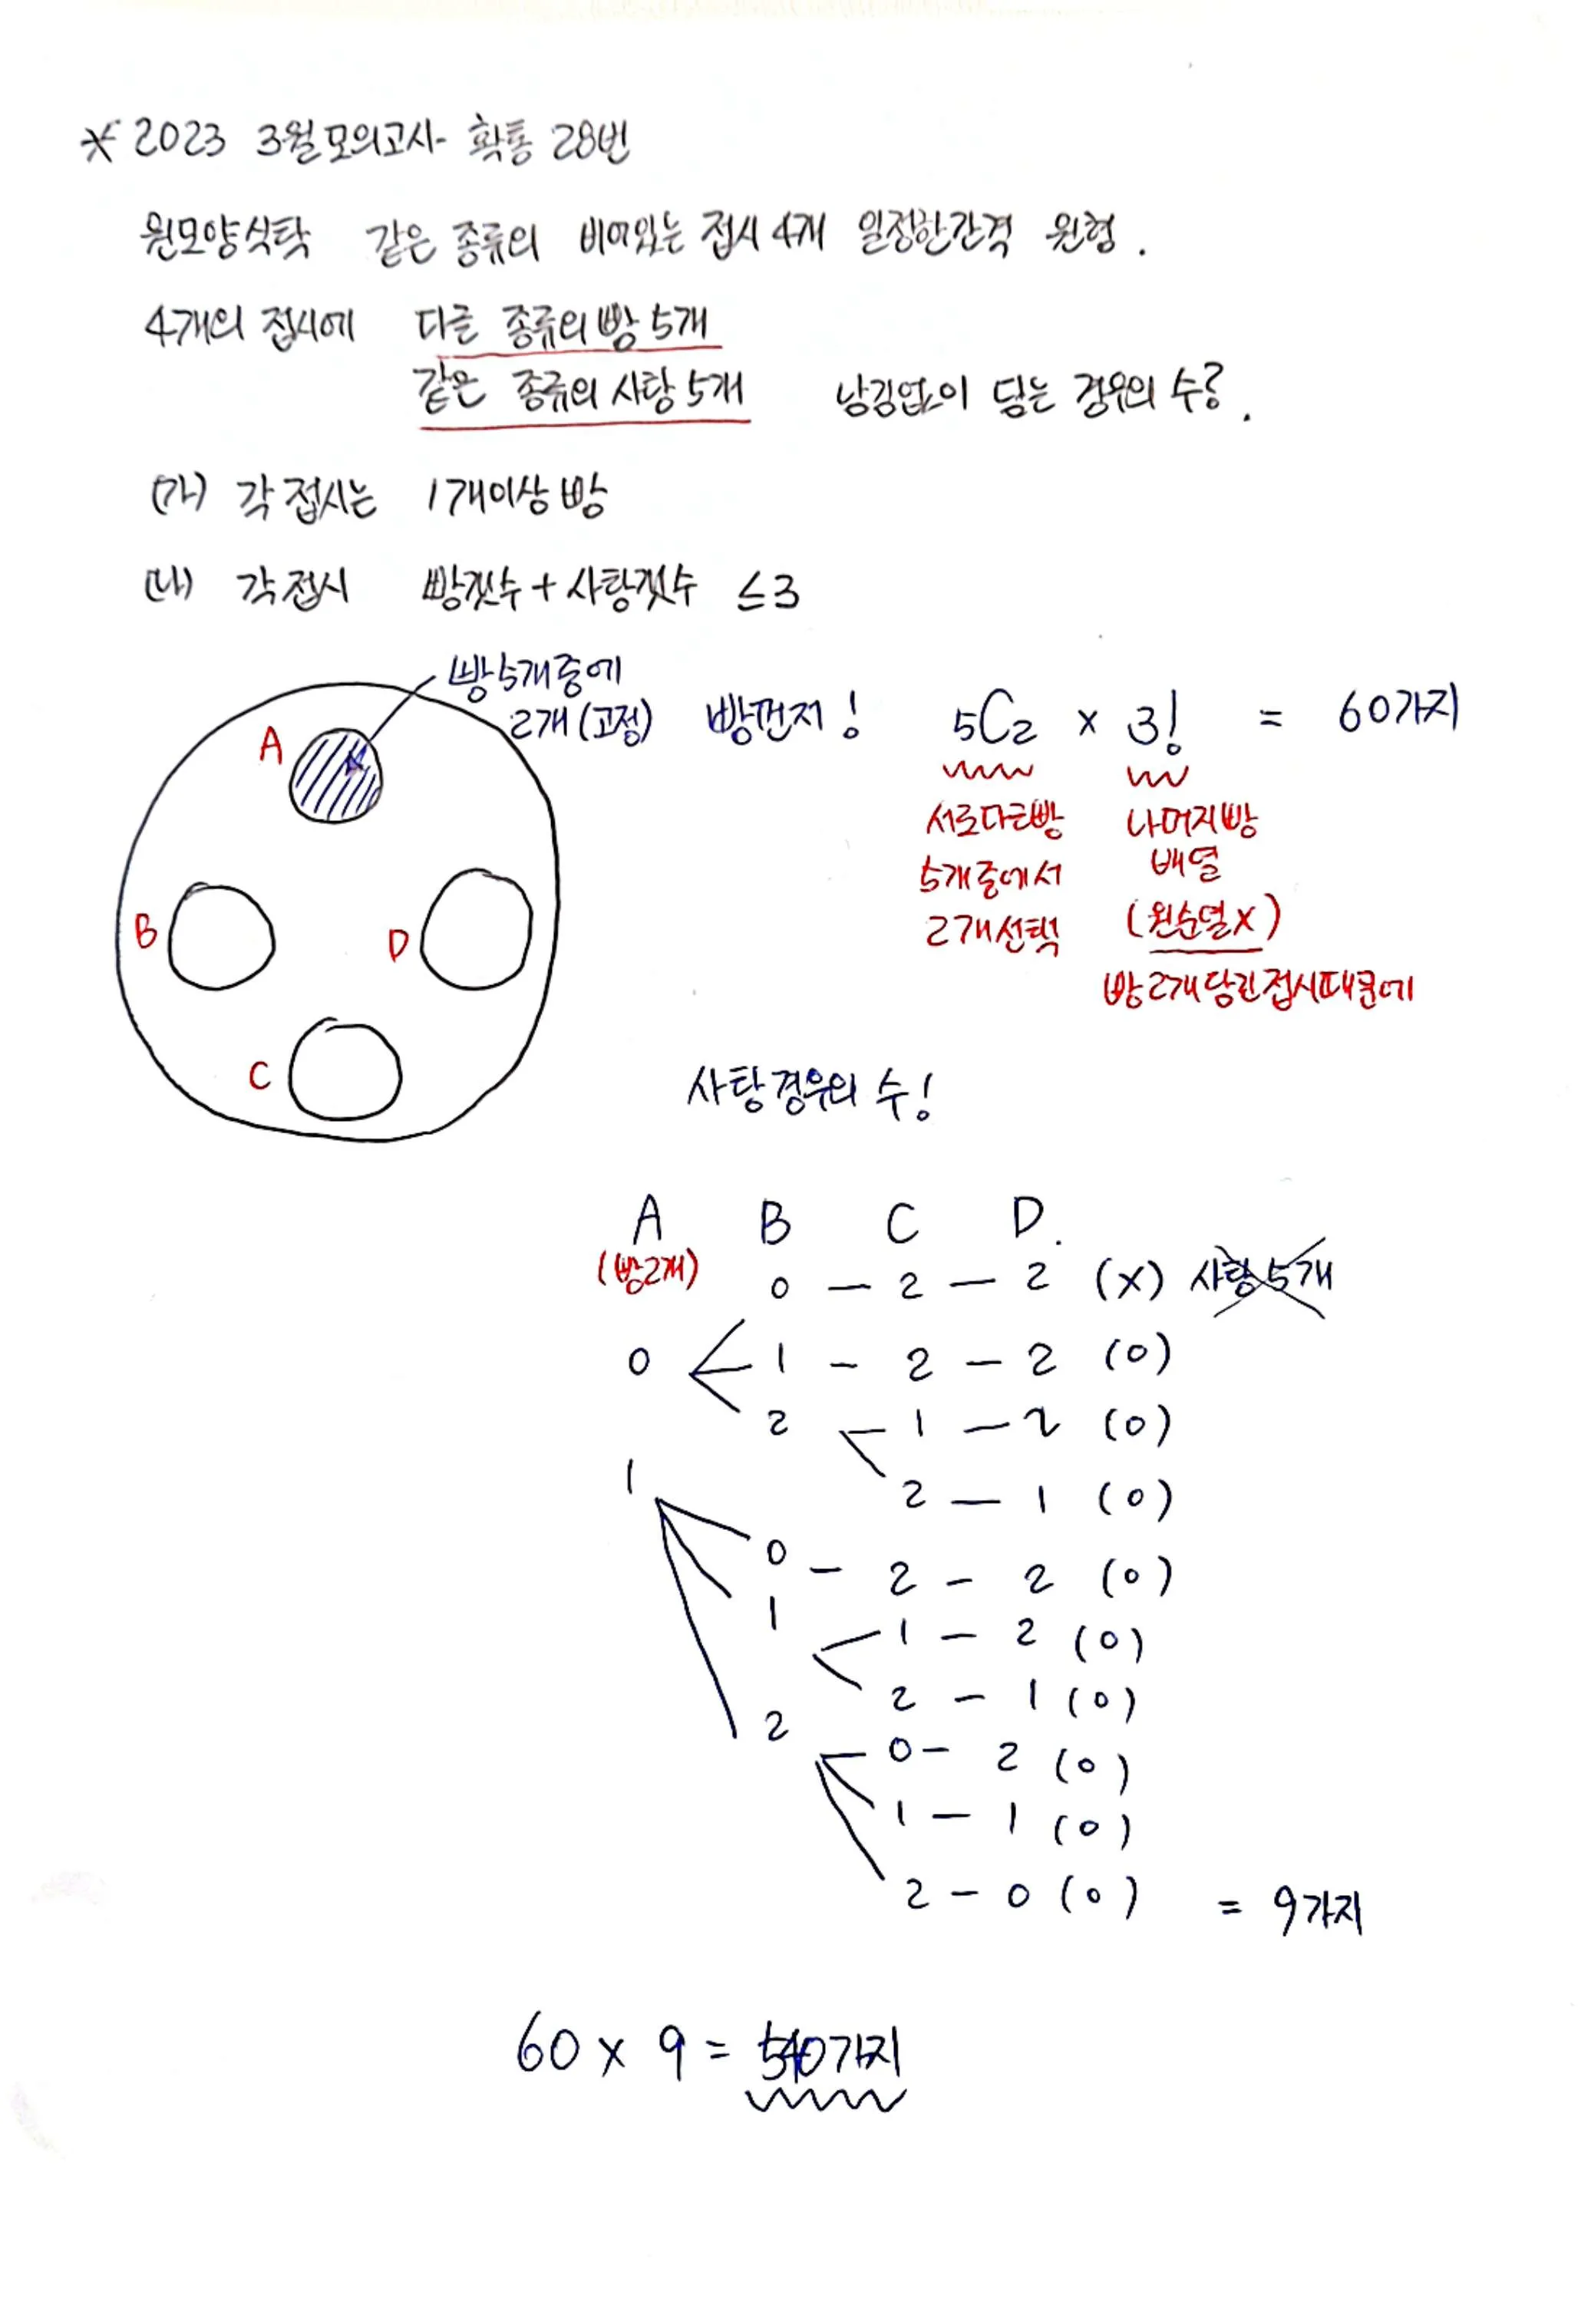 * 2023 3월모의고사- 확통 28번
원모양식탁 같은 종류의 비어있는 접시 4개 일정한간격 원형.
4개의 접시에 다른 종류의 빵 5개
같은 종류의 사탕 5개 남김없이 담는 경우의 수?.
(가) 각 접시는 1개이상 빵
(나) 각접시 빵갯수 + 사탕갯수 ≤3
빵5개중에
2개(고정)
A
B
D
C
빵먼저! 5C2 x 3! = 60가지
서로다른빵
5개중에서
2개선택
나머지빵
배열
(원순열X)
빵2개담긴접시때문에
사탕경우의 수!
A B C D.
(빵2개)
0 - 2 - 2 (x) 사탕5개
0 1 - 2 - 2 (0)
2 1 - 2 (0)
2 - 1 (0)
1
0 - 2 - 2 (0)
1 1 - 2 (0)
2 - 1 (0)
2 0 - 2 (0)
1 - 1 (0)
2 - 0 (0) = 9가지
60 x 9 = 540가지